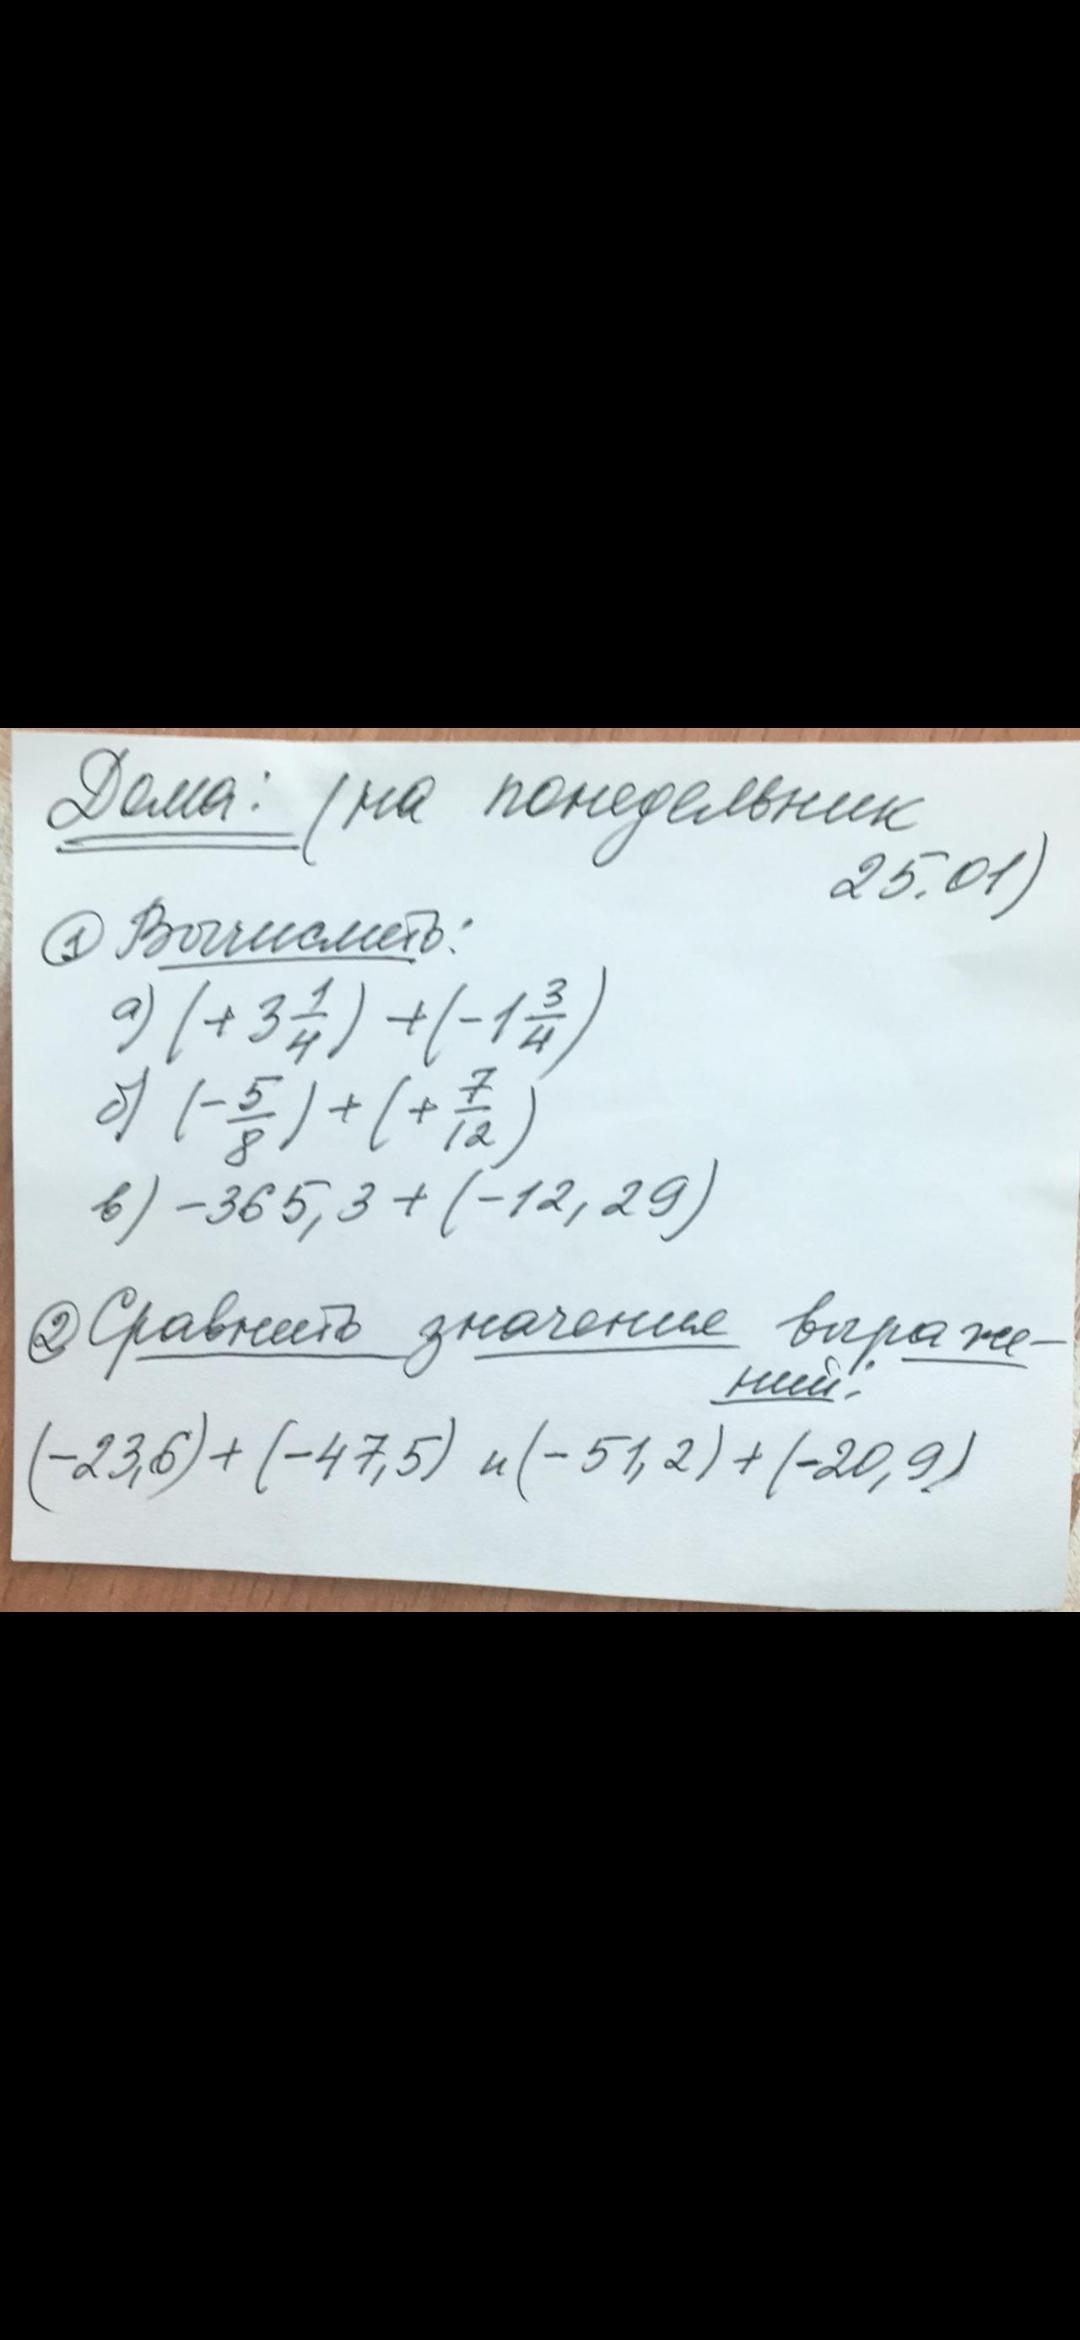 Дома: (на понедельник
25.01)
① Вычислить:
а) (+3 1/4) + (-1 3/4)
б) (-5/8) + (+7/12)
в) -365,3 + (-12,29)
② Сравнить значения выраже-
ний:
(-23,6) + (-47,5) и (-51,2) + (-20,9)